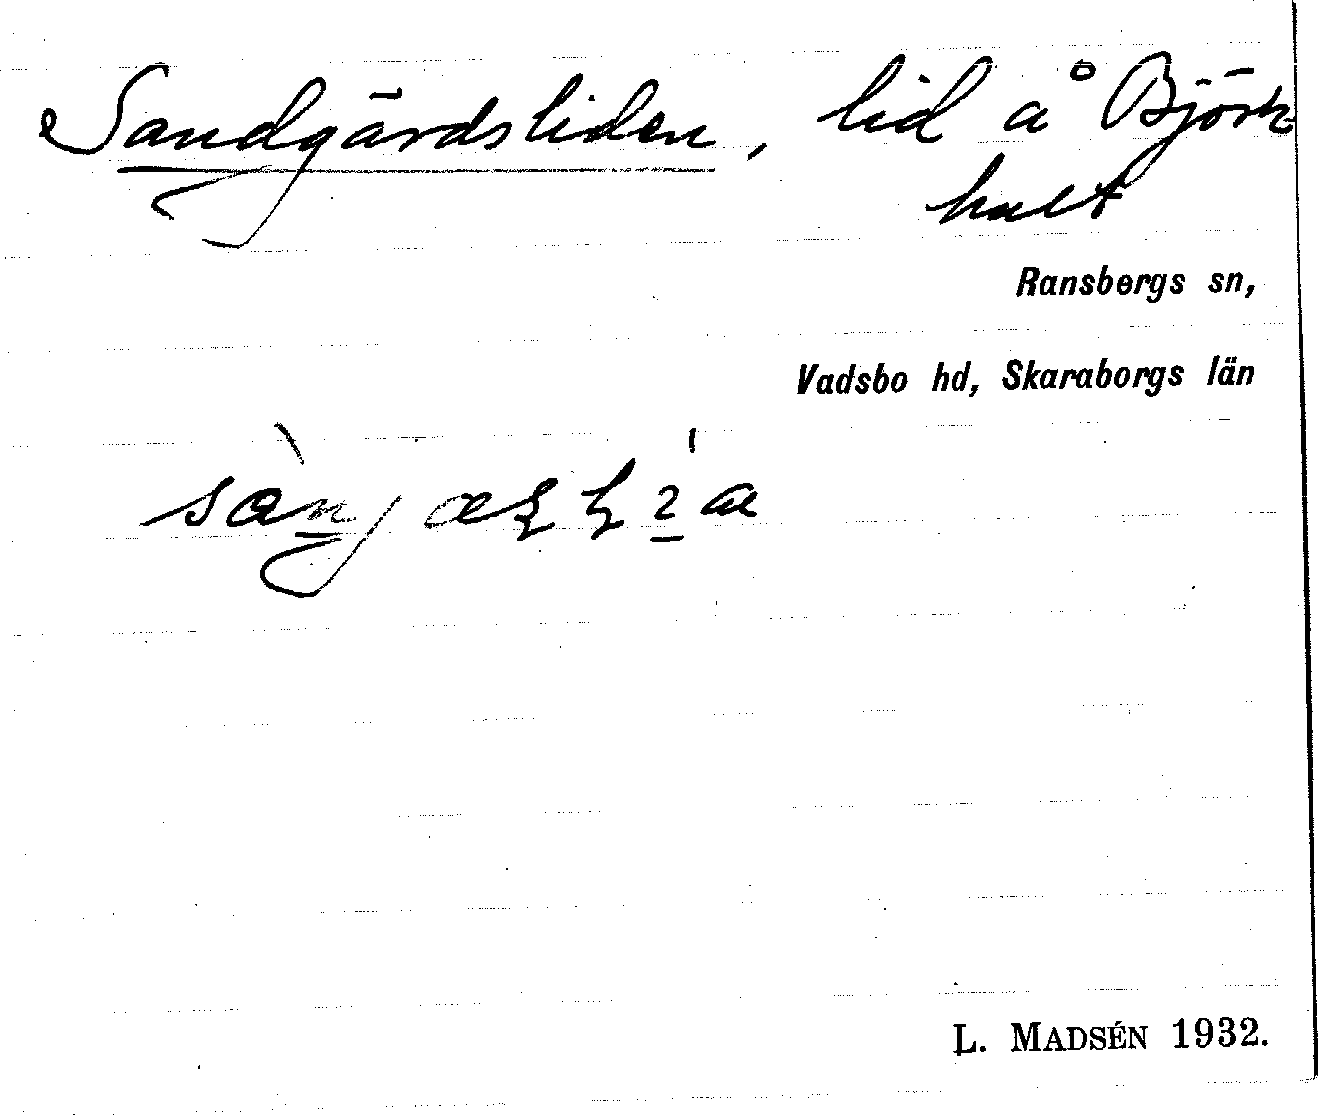 Sandgärdsliden, lid å Björk
hult
Ransbergs sn,
Vadsbo hd, Skaraborgs län
L. MADSÉN 1932.